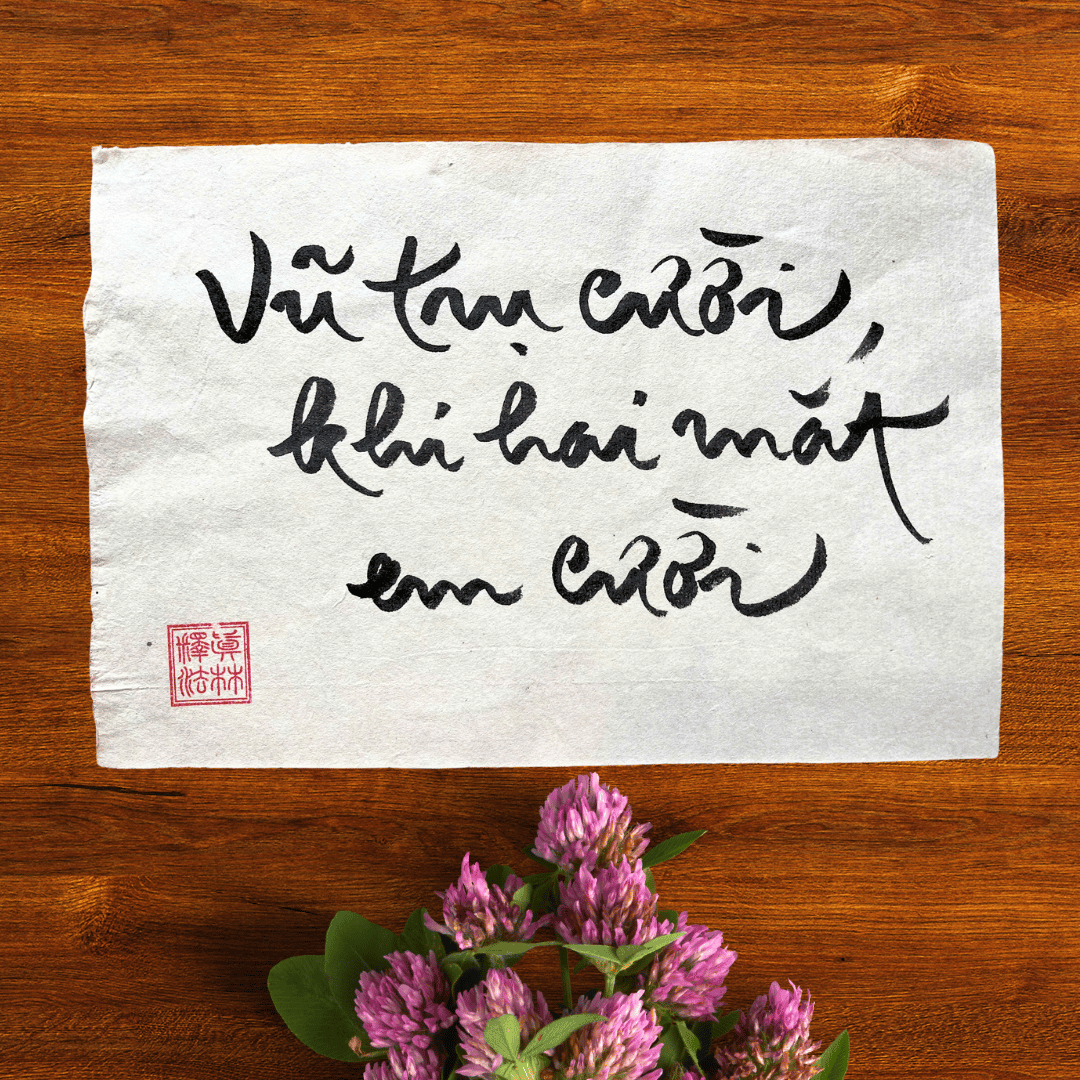 Vũ trụ cười,
khi hai mắt
em cười
眞林
釋法